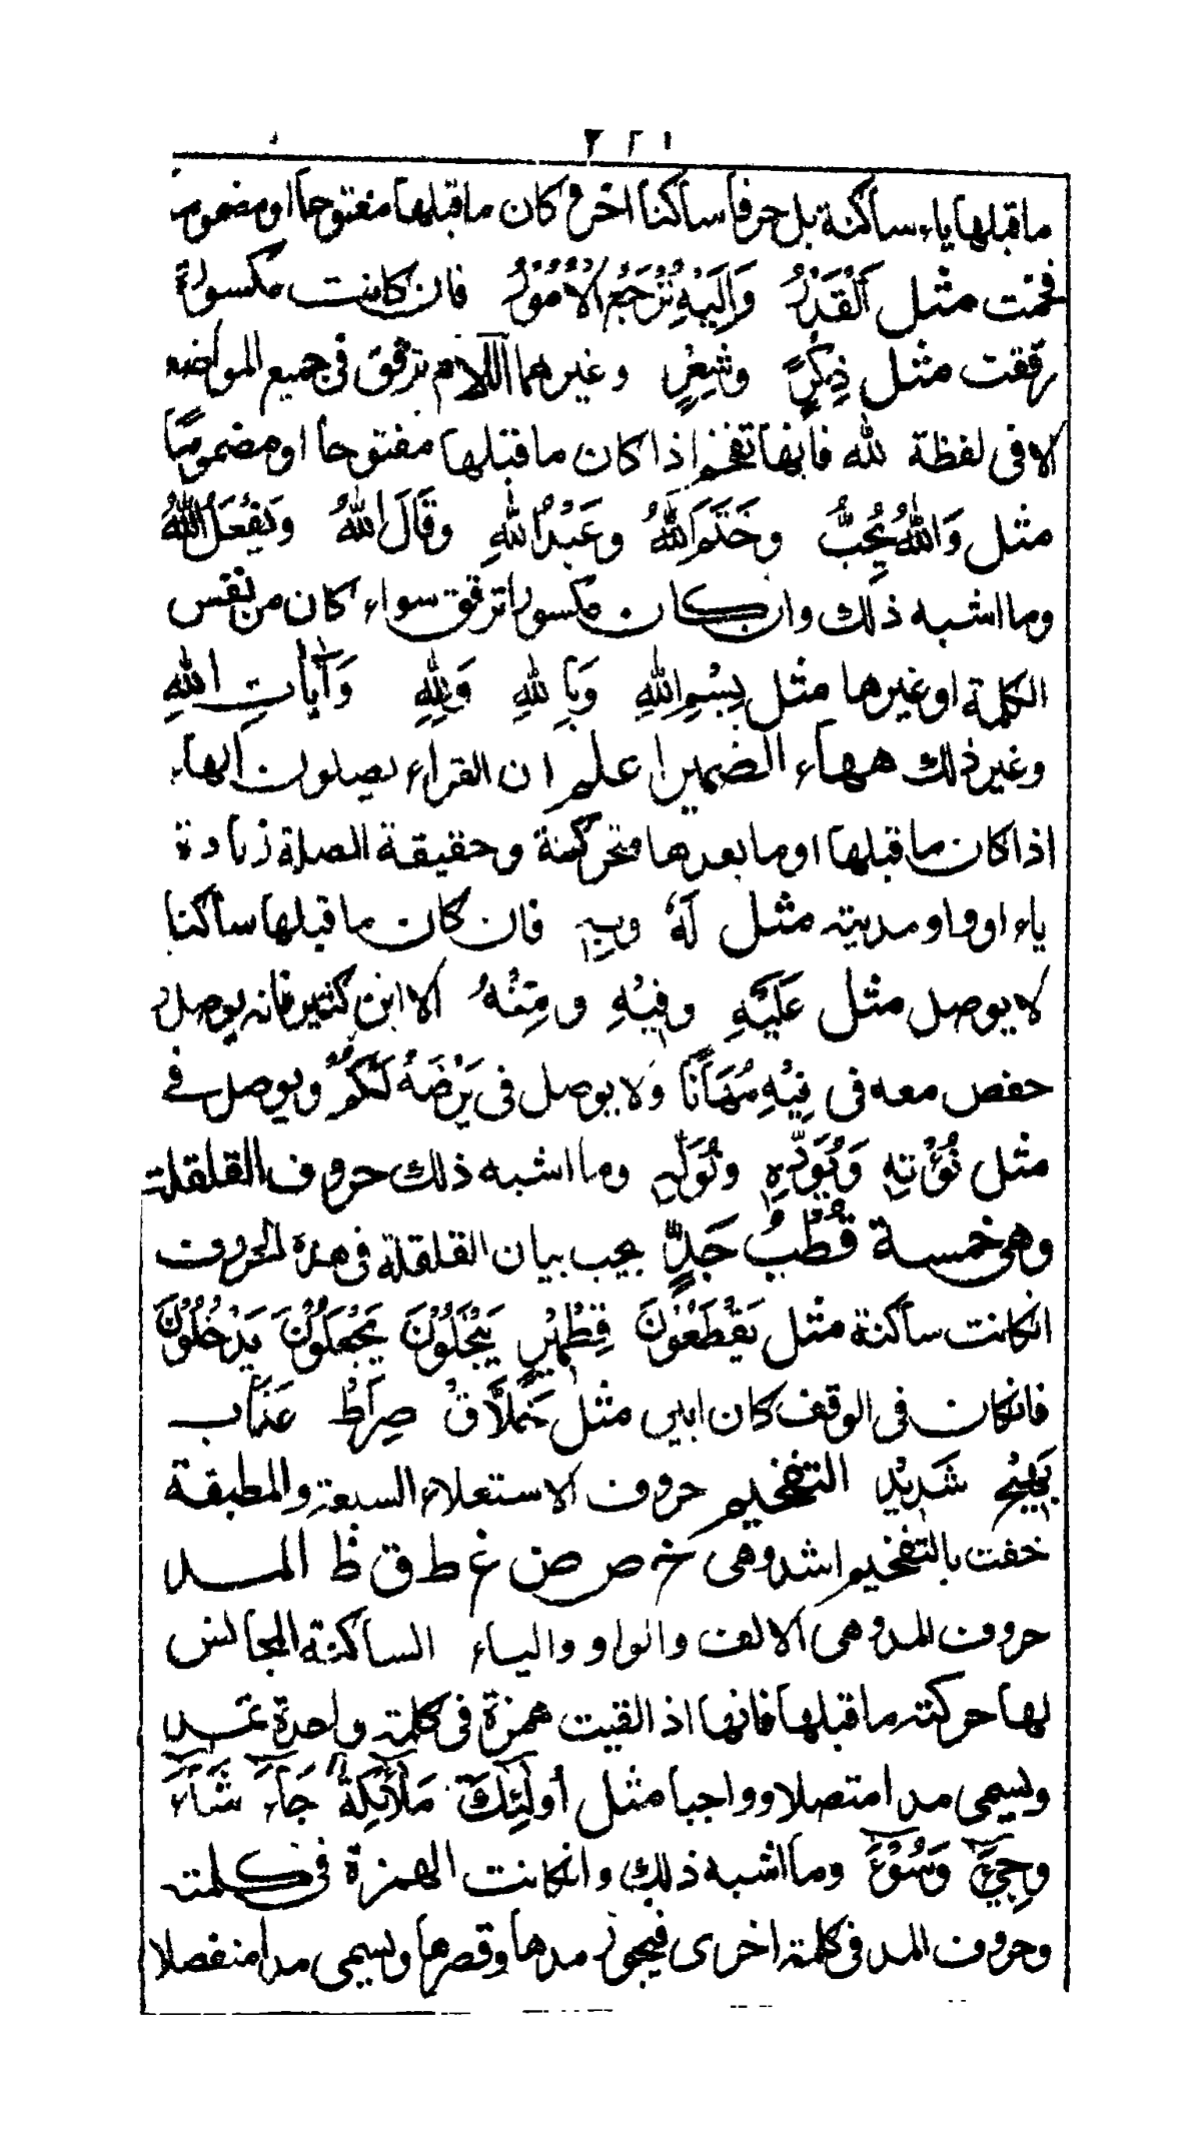 ما قبلها ياء ساكنة بل حرفا ساكنا اخر و كان ما قبلها مفتوحا او مضموما
فخمت مثل اَلْقَدْرُ وَاِلَيْهِ تُرْجَعُ الْاُمُوْرُ فان كانت مكسورة
رققت مثل ذِكْرٍ وشِعْرٍ وغيرهما اللام ترقق فى جميع المواضع
الا فى لفظة الله فانها تفخم اذا كان ما قبلها مفتوحا او مضموما
مثل وَاللهُ يُحِبُّ وخَتَمَ اللهُ وعَبْدُ اللهِ وقَالَ اللهُ ويَفْعَلُ اللهُ
وما اشبه ذلك وان كان مكسورا ترقق سواء كان من نفس
الكلمة او غيرها مثل بِسْمِ اللهِ وَبِاللهِ وَلِلّٰهِ وَآيَاتِ اللهِ
وغير ذلك هاء الضمير اعلم ان القراء يصلون الهاء
اذا كان ما قبلها او ما بعدها متحركة وحقيقة الصلة زيادة
ياء او واو مدية مثل لَهُ وبِهِ فان كان ما قبلها ساكنا
لا يوصل مثل عَلَيْهِ وفِيْهِ ومِنْهُ الا ابن كثير فانه يوصل و
حفص معه فى فِيْهِ مُهَانًا ولا يوصل فى يَرْضَهُ لَكُمْ ويوصل فے
مثل نُؤْتِهِ وَيُؤَدِّهِ ونُوَلِّهِ وما اشبه ذلك حروف القلقلة
وهى خمسة قُطْبُ جَدٍّ يجب بيان القلقلة فى هذه الحروف
انكانت ساكنة مثل يَقْطَعُوْنَ قِطْمِيْرٍ يَبْخَلُوْنَ يَجْعَلُوْنَ يَدْخُلُوْنَ
فانكان فى الوقف كان ابين مثل خَلَّاقْ صِرَاطْ عَذَابْ
بَهِيْجْ شَدِيْدْ التفخيم حروف الاستعلاء السبعة والمطبقة
خفت بالتفخيم اشد وهى خ ص ض غ ط ق ظ المد
حروف المد وهى الالف والواو والياء الساكنة المجانس
لها حركة ما قبلها فانها اذ القيت همزة فى كلمة واحدة تمد
ويسمى مدا متصلا وواجبا مثل اُولٰٓئِكَ مَلٰٓئِكَةٌ جَآءَ شَآءَ
وجِيْٓءَ وَسُوْٓءَ وما اشبه ذلك وانكانت الهمزة فى كلمة
وحروف المد فى كلمة اخرى فيجوز مدها وقصرها ويسمى مدا منفصلا